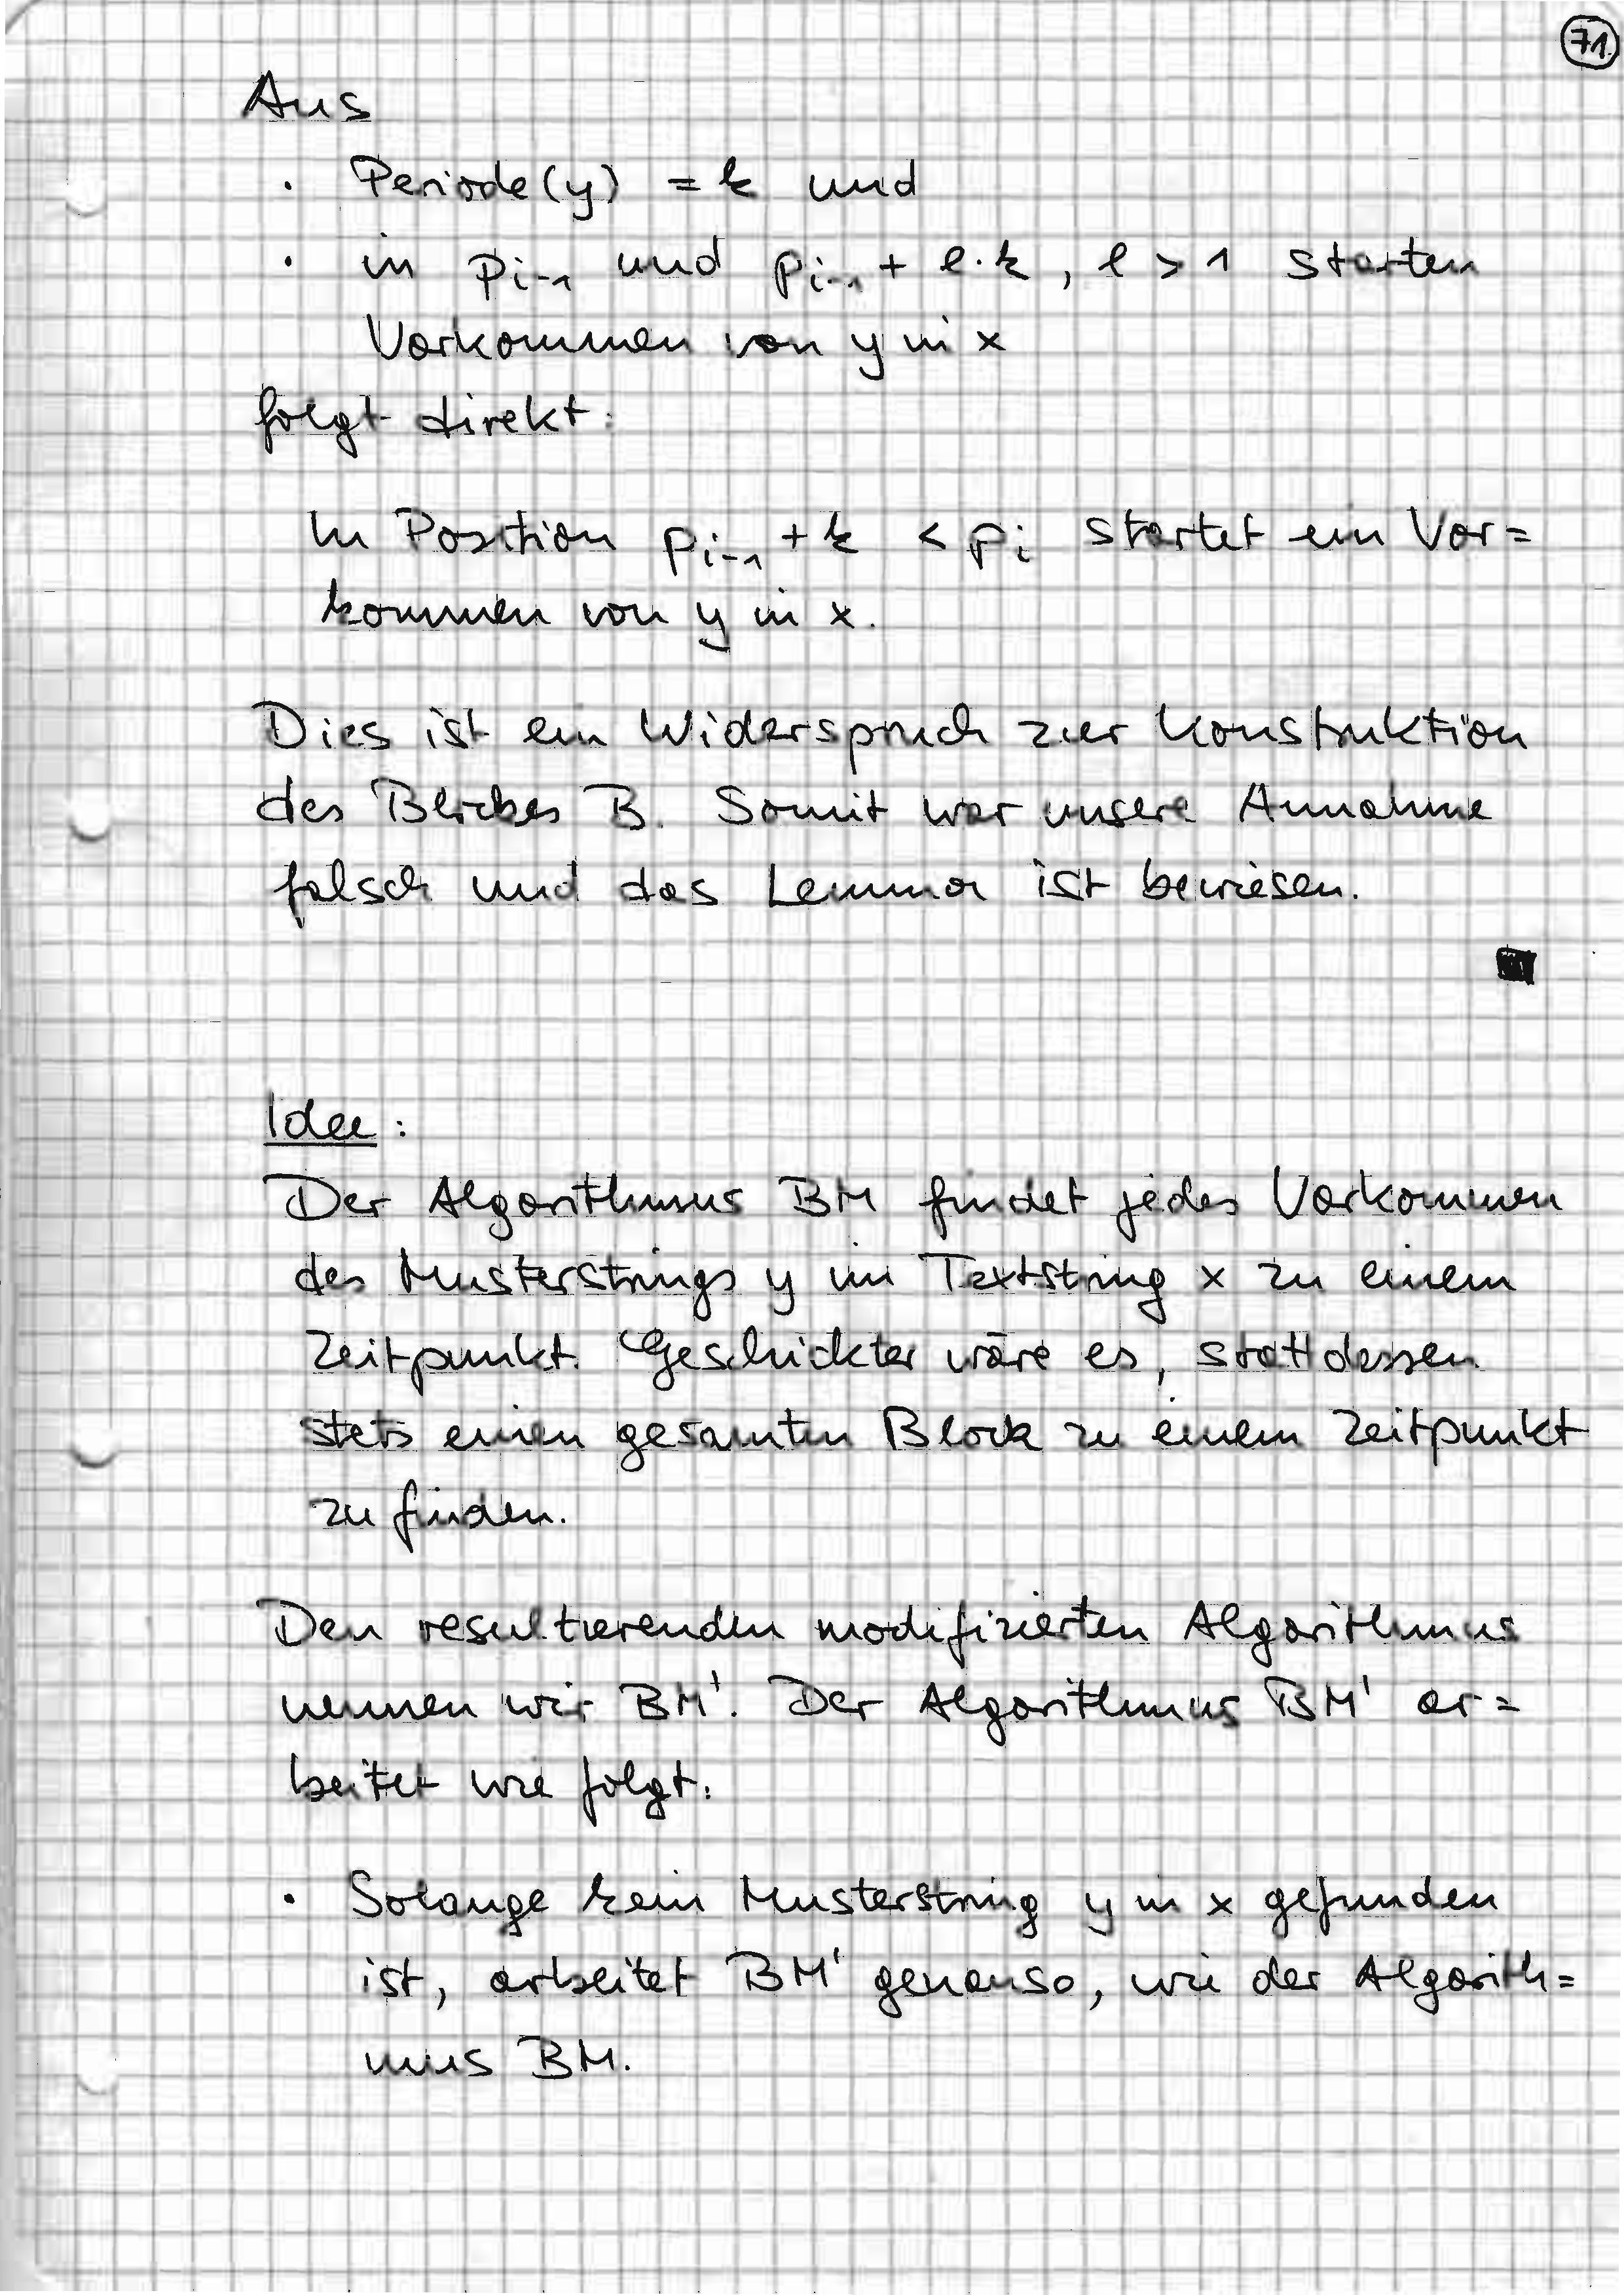 71.
Aus
· Periode(y) = k und
· in p_{i-1} und p_{i-1} + l·k, l > 1 starten
Vorkommen von y in x
folgt direkt:
In Position p_{i-1} + k < p_i startet ein Vor=
kommen von y in x.
Dies ist ein Widerspruch zur Konstruktion
des Blockes B. Somit war unsere Annahme
falsch und das Lemma ist bewiesen.
Idee:
Der Algorithmus BM findet jedes Vorkommen
des Musterstrings y im Textstring x zu einem
Zeitpunkt. Geschickter wäre es, stattdessen
stets einen gesamten Block zu einem Zeitpunkt
zu finden.
Den resultierenden modifizierten Algorithmus
nennen wir BM'. Der Algorithmus BM' ar=
beitet wie folgt:
· Solange kein Musterstring y in x gefunden
ist, arbeitet BM' genauso, wie der Algorith=
mus BM.